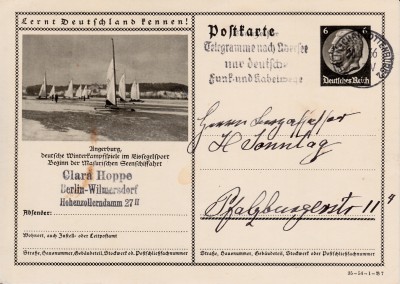 Lernt Deutschland kennen!
Angerburg,
deutsche Winterkampfspiele im Eissegelsport
Beginn der Masurischen Seenschiffahrt
Clara Hoppe
Berlin-Wilmersdorf
Hohenzollerndamm 27 II
Absender:
Wohnort, auch Zustell- oder Leitpostamt
Straße, Hausnummer, Gebäudeteil, Stockwerk od. Postschließfachnummer
Postkarte
Telegramme nach Übersee
nur deutsche
Funk- und Kabelwege
6 6
Deutsches Reich
Herrn
H Sonntag
Pfalzburgerstr 11
Straße, Hausnummer, Gebäudeteil, Stockwerk od. Postschließfachnummer